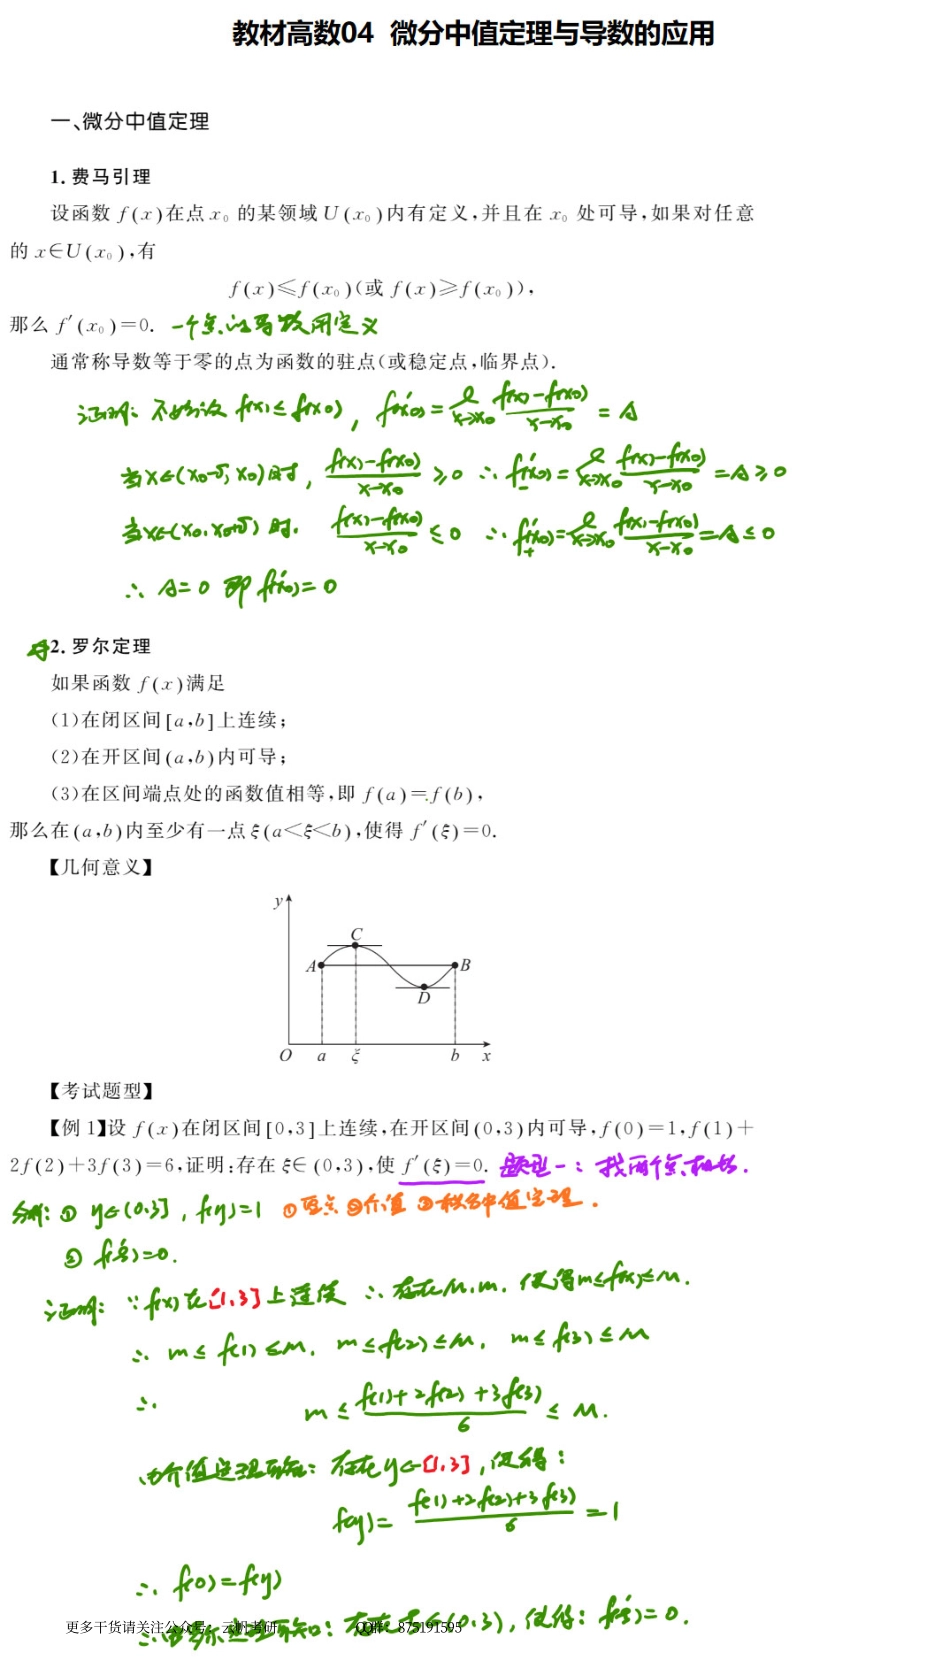 教材高数04 微分中值定理与导数的应用
一、微分中值定理
1. 费马引理
设函数 f(x)在点 x₀ 的某领域 U(x₀)内有定义,并且在 x₀ 处可导,如果对任意
的 x∈U(x₀),有
f(x)≤f(x₀)(或 f(x)≥f(x₀)),
那么 f′(x₀)=0. 一个点的导数用定义
通常称导数等于零的点为函数的驻点(或稳定点,临界点).
证明: 不妨设 f(x)≤f(x₀), f′(x₀)=l x→x₀ (f(x)-f(x₀))/(x-x₀) = A
当x∈(x₀-δ, x₀)时, (f(x)-f(x₀))/(x-x₀) ≥0 ∴ f′₋(x₀)=l x→x₀ (f(x)-f(x₀))/(x-x₀) =A≥0
当x∈(x₀,x₀+δ)时. (f(x)-f(x₀))/(x-x₀) ≤0 ∴ f′₊(x₀)=l x→x₀ (f(x)-f(x₀))/(x-x₀) =A≤0
∴ A=0 即 f′(x₀)=0
2. 罗尔定理
如果函数 f(x)满足
(1)在闭区间[a,b]上连续;
(2)在开区间(a,b)内可导;
(3)在区间端点处的函数值相等,即 f(a)=f(b),
那么在(a,b)内至少有一点ξ(a<ξ<b),使得 f′(ξ)=0.
【几何意义】
y
C
A
B
D
O a ξ b x
【考试题型】
【例 1】设 f(x)在闭区间[0,3]上连续,在开区间(0,3)内可导,f(0)=1,f(1)+
2f(2)+3f(3)=6,证明:存在 ξ∈(0,3),使 f′(ξ)=0. 题型一: 找两个点相等.
分析: ① y∈(0,3], f(y)=1 ①零点 ②介值 ③积分中值定理.
② f′(ξ)=0.
证明: ∵f(x)在[1,3]上连续 ∴存在M,m. 使得m≤f(x)≤M.
∴ m≤f(1)≤M, m≤f(2)≤M, m≤f(3)≤M
∴ m≤(f(1)+2f(2)+3f(3))/6≤M.
由介值定理可知: 存在y∈[1,3],使得:
f(y)=(f(1)+2f(2)+3f(3))/6=1
∴ f(0)=f(y)
∴由罗尔定理可知: 存在ξ∈(0,3), 使得: f′(ξ)=0.
更多干货请关注公众号:云帆考研 QQ群:875191595